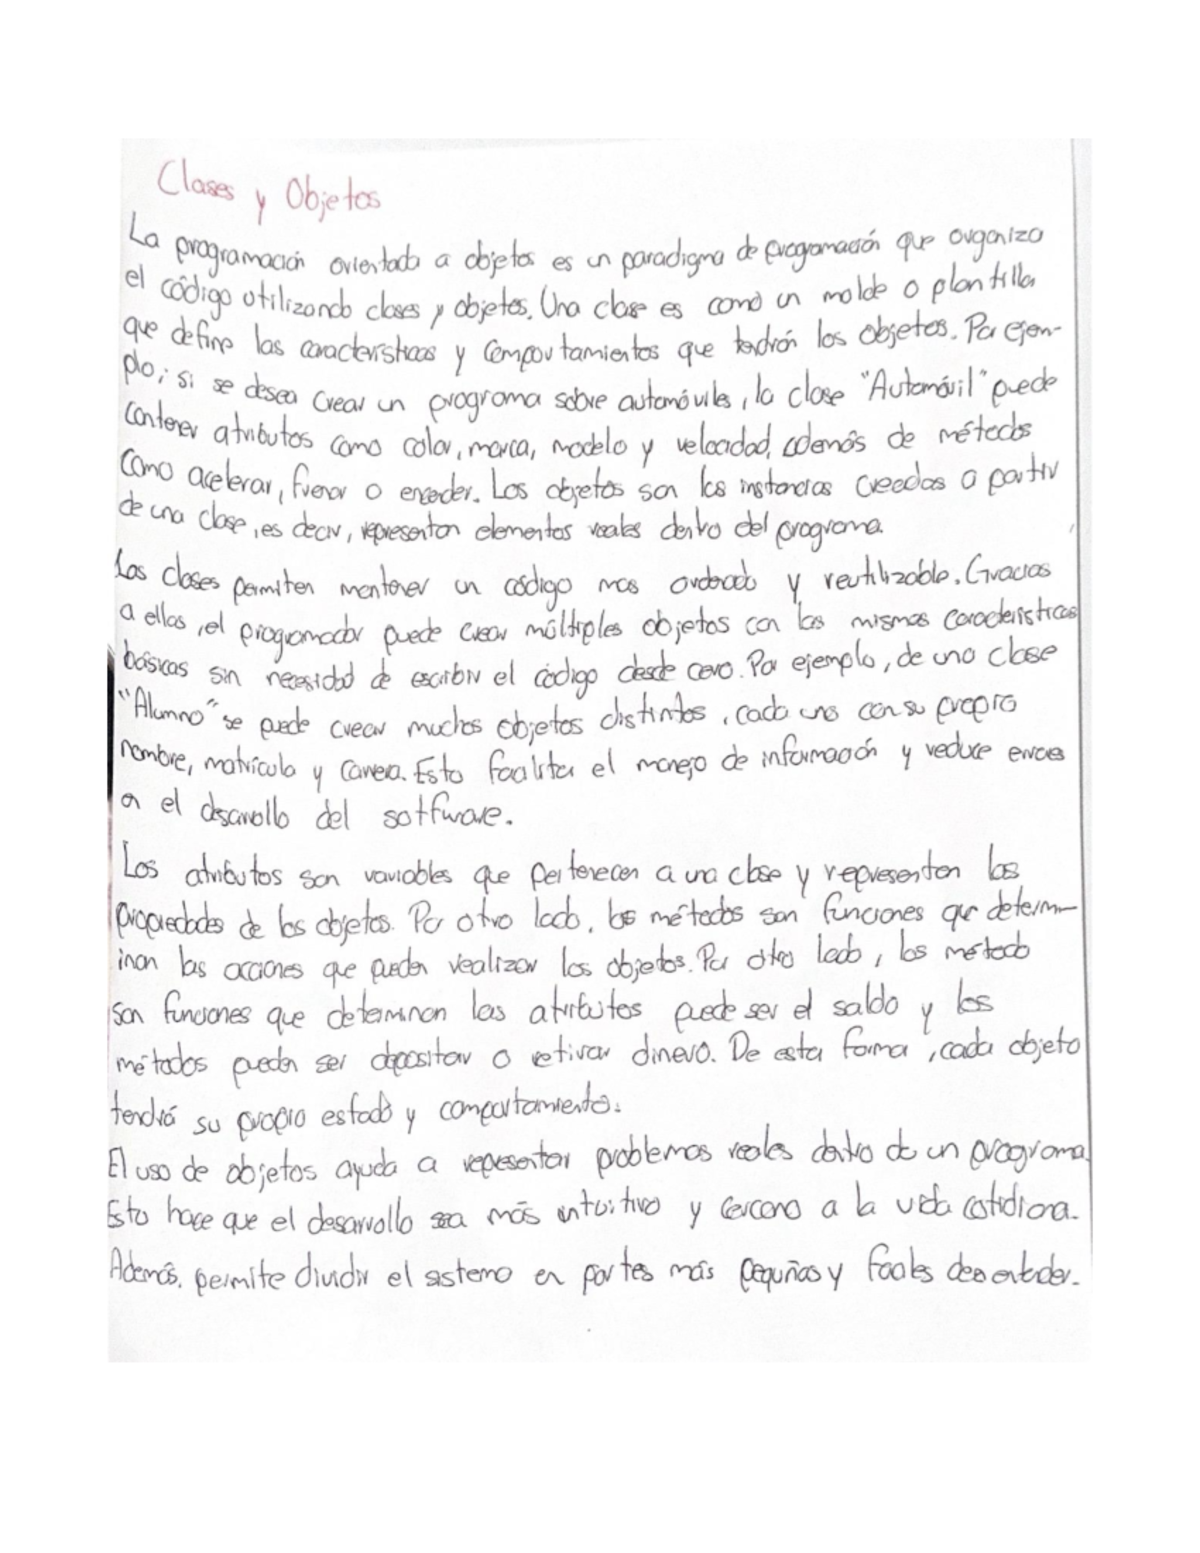 Clases y Objetos
La programación orientada a objetos es un paradigma de programación que organiza
el código utilizando clases y objetos. Una clase es como un molde o plantilla
que define las características y comportamientos que tendrán los objetos. Por ejem-
plo; si se desea crear un programa sobre automóviles, la clase "Automóvil" puede
contener atributos como color, marca, modelo y velocidad, además de métodos
como acelerar, frenar o encender. Los objetos son las instancias creadas a partir
de una clase, es decir, representan elementos reales dentro del programa.
Las clases permiten mantener un código mas ordenado y reutilizable. Gracias
a ellas, el programador puede crear múltiples objetos con las mismas características
básicas sin necesidad de escribir el código desde cero. Por ejemplo, de una clase
"Alumno" se puede crear muchos objetos distintos, cada uno con su propio
nombre, matrícula y carrera. Esto facilita el manejo de información y reduce errores
en el desarrollo del sotfware.
Los atributos son variables que pertenecen a una clase y representan las
propiedades de los objetos. Por otro lado, los métodos son funciones que determ-
inan las acciones que pueden realizar los objetos. Por otro lado, los método
son funciones que determinan las atributos puede ser el saldo y los
métodos pueden ser depositar o retirar dinero. De esta forma, cada objeto
tendrá su propio estado y comportamiento.
El uso de objetos ayuda a representar problemas reales dentro de un programa.
Esto hace que el desarrollo sea más intuitivo y cercano a la vida cotidiana.
Además, permite dividir el sistema en partes más pequñas y faciles de entender.